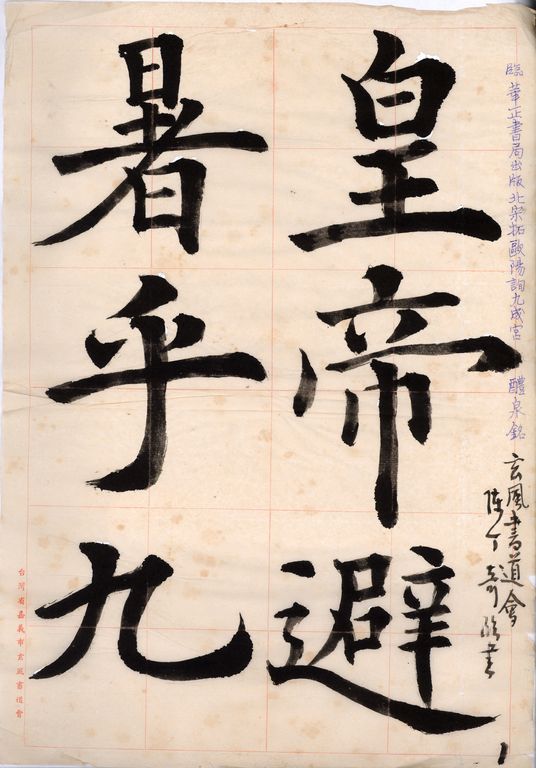 皇帝避
暑乎九
臨華正書局出版北宋拓歐陽詢九成宮 醴泉銘
玄風書道會
陳丁奇臨書
台灣省嘉義市玄風書道會